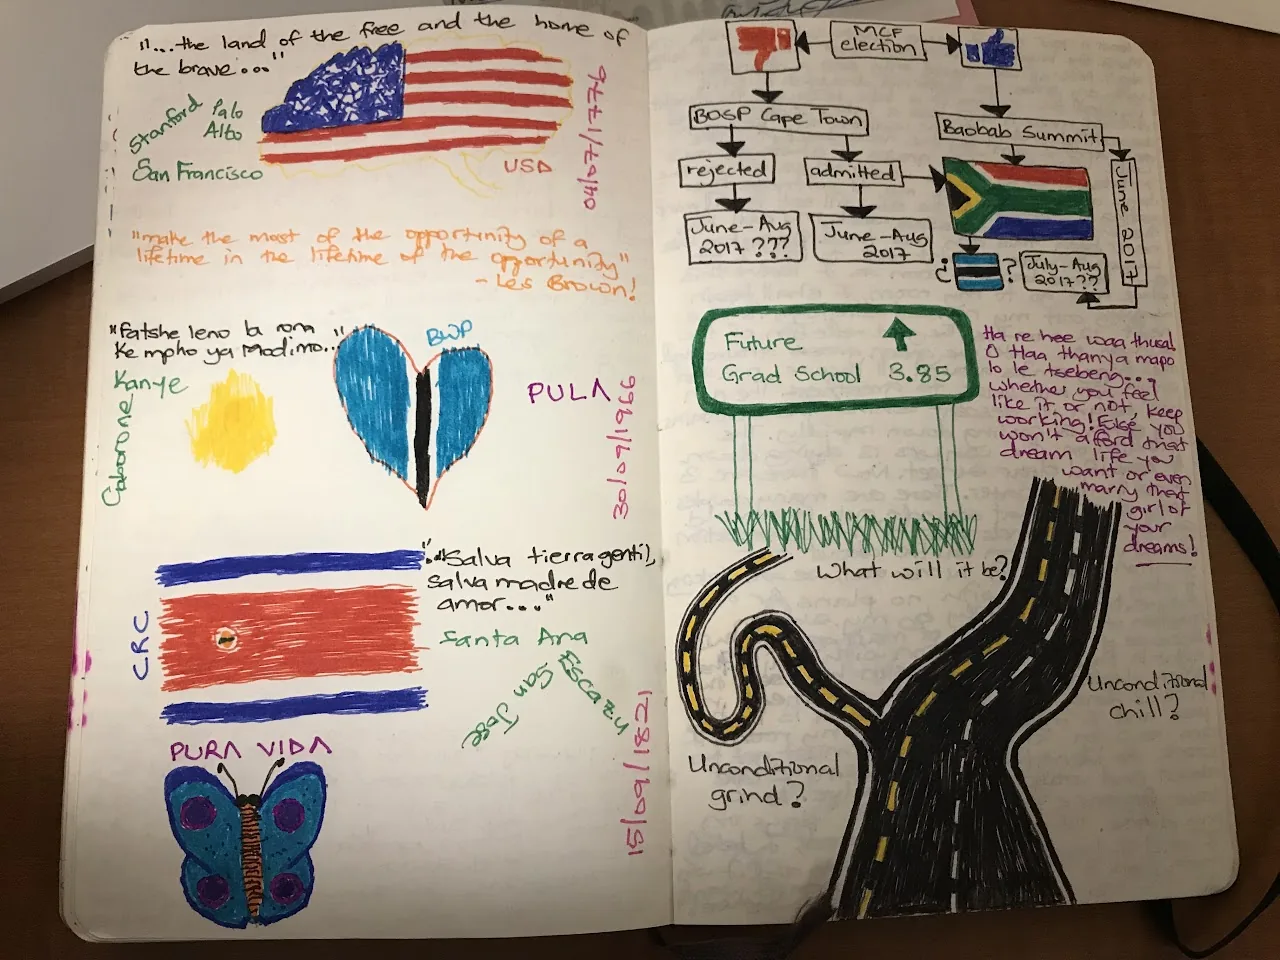 "...the land of the free and the home of
the brave..."
Stanford
Palo
Alto
San Francisco
USD
04/07/1776
"make the most of the opportunity of a
lifetime in the lifetime of the opportunity"
- Les Brown!
"Fatshe leno la rona
Ke mpho ya Modimo..."
Kanye
Gaborone
BWP
PULA
30/09/1966
"...Salva tierra gentil,
salva madre de
amor..."
CRC
Santa Ana
Escazu
San Jose
15/09/1821
PURA VIDA
MCF
election
BOSP Cape Town
Baobab Summit
rejected
admitted
June 2017
June-Aug
2017 ???
June-Aug
2017
¿ ?
July-Aug
2017??
Future
Grad School 3.85
Ha re hee waa thusal
O tlaa thanya mapo
lo le tsebeng...
whether you feel
like it or not, keep
working! Else you
won't afford that
dream life you
want or even
marry that
girl of
your
dreams!
What will it be?
Unconditional
chill?
Unconditional
grind?